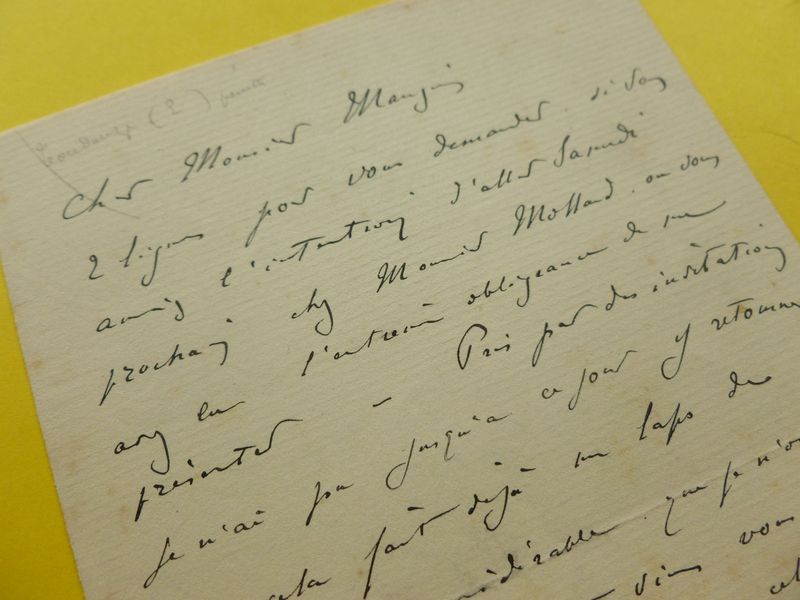 (2) peintre
Cher Monsieur Mangin
2 lignes pour vous demander si vous
aviez l'intention d'aller Samedi
prochain chez Monsieur Mollard, ou vous
avez eu l'extreme obligeance de me
présenter – Pris par des invitations
je n'ai pu jusqu'à ce jour y retourner
cela fait déjà un laps de
considérable que je n'ose
viens vous